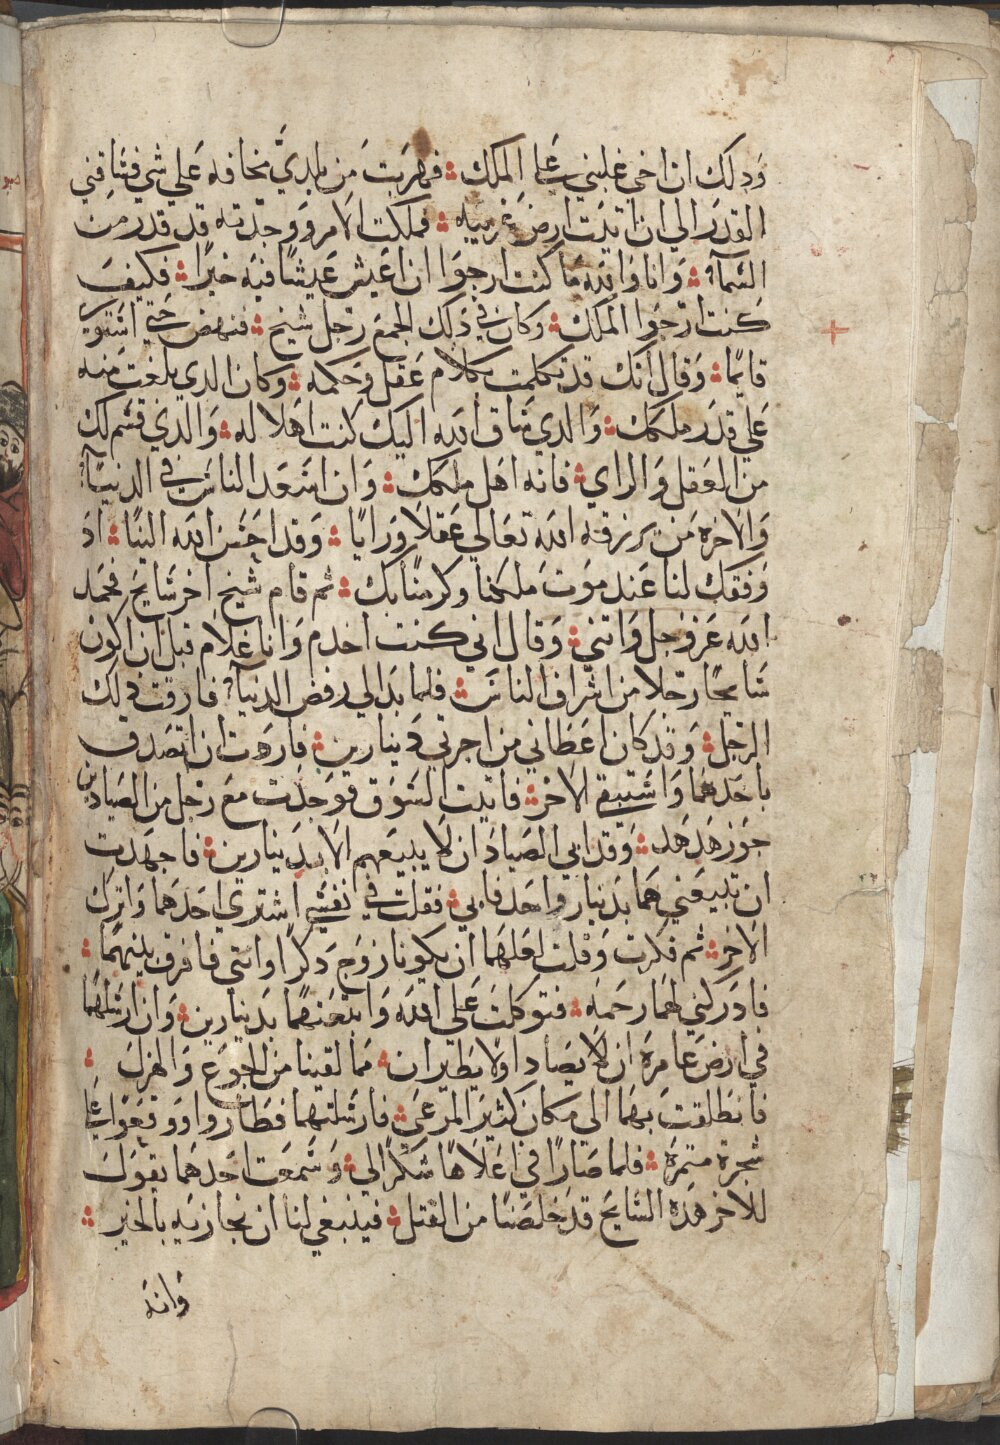 وذلك ان اخي غلبني على الملك فهربت من بلدي مخافه علي شي فساقني
القدر الي ان اتيت ارض غريبه فملكت الامر ووجدته قد قدر من
السمآء وانا والله ما كنت ارجوا ان اعيش عيشًا فيه خيرًا فكيف
كنت ارجوا الملك وكان في ذلك الجمع رجل شيخ فنهض حتي استوي
قايمًا وقال انك قد تكلمت بكلام عقل وحكمه وكان الدي بلغت منه
علي قدر ملكك والدي ساق الله اليك كنت اهلا له والذي قسم لك
من العقل والراي فانه اهل ملكك وان اسعد الناس في الدنيا
والاخره من يرزقه الله تعالي عقلا ورايًا وقد احسن الله الينا اذ
وفقك لنا عند موت ملكنا وكرمنا بك ثم قام شيخ اخر سايح فحمد
الله عز وجل واتني وقال اني كنت اخدم وانا غلام قبل ان اكون
سايحًا رجلا من اشراف الناس فلما بدا لي رفض الدنيآ فارقت ذلك
الرجل وقد كان اعطاني من اجرتي دينارين فاردت ان اتصدق
باحدهما واستبقي الاخر فاتيت السوق فوجدت مع رجل من الصيادين
جوز هدهد وقد ابي الصياد ان لا يبيعهم الا بدينارين فاجهدت
ان تبيعني هما بدينار واحد فابي فقلت في نفسي اشتري احدهما واترك
الاخر ثم فكرت وقلت لعلهما ان يكونا زوج دكرًا وانتي فافرق بينهما
فادركني لهما رحمه فتوكلت علي الله وابتعتهما بدينارين وان ارسلهما
في ارض عامره ان لا يصادا ولا يطيران مما لقينا من الجوع والهزل
فانطلقت بهما الي مكان كثير المرعي فارسلتهما فطاروا ووقعوا على
شجرة متمره فلما صارا في اعلاها شكرا لي وسمعت احدهما يقول
للاخر هذه السايح قد خلصنا من القتل فينبغي لنا ان نجازيه بالخير
وانه